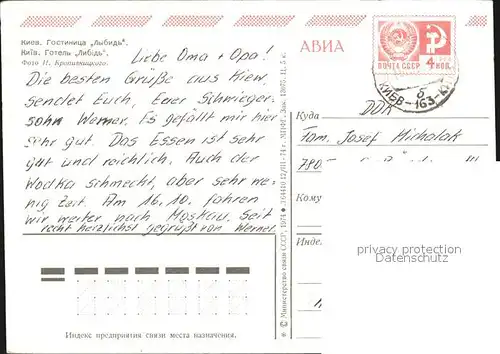 Киев. Гостиница „Лыбидь".
Київ. Готель „Либідь".
Фото И. Кропивницкого.
АВИА
ПОЧТА СССР 4 КОП.
КИЕВ-163
б
Liebe Oma + Opa!
Die besten Grüße aus Kiew
sendet Euch, Euer Schwieger-
sohn Werner. Es gefällt mir hier
sehr gut. Das Essen ist sehr
gut und reichlich. Auch der
Wodka schmeckt, aber sehr we-
nig Zeit. Am 16.10. fahren
wir weiter nach Moskau. Seit
recht herzlichst gegrüßt von Werner
Куда
DDR
Fam. Josef Michalak
Кому
Индекс
privacy protection
Datenschutz
© Министерство связи СССР, 1974
Индекс предприятия связи места назначения.